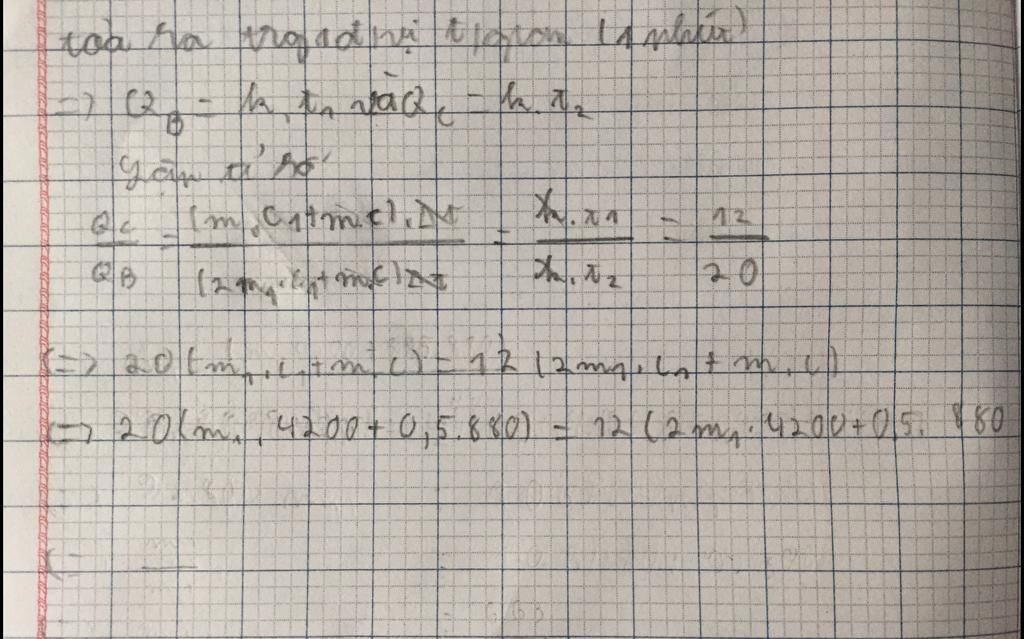 toả ra trg 1 đ vị t gian (1 nhiệt)
=> Q_B = k.t₁ và Q_C = k.t₂
Lập tỉ số
Q_C/Q_B = (m₁.C₁+m.c).Δt/(2m₁.c₁+m.c)Δt = k.t1/k.t₂ = 12/20
<=> 20(m₁.c₁+m.c) = 12(2m₁.c₁+m.c)
<=> 20(m₁.4200+0,5.880) = 12(2m₁.4200+0,5.880
<=